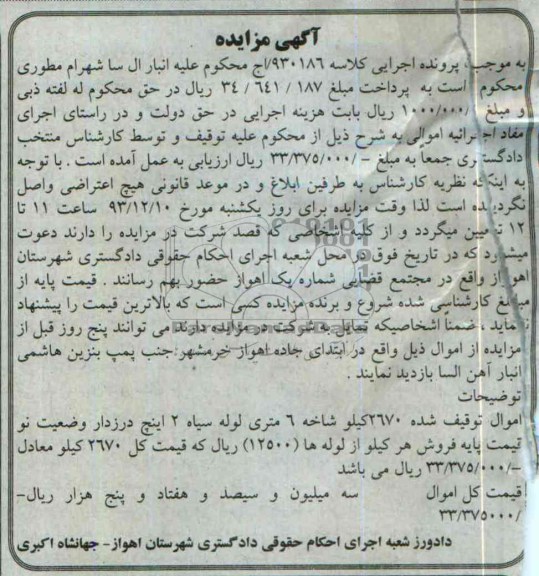 آگهی مزایده
به موجب پرونده اجرایی کلاسه ۹۳۰۱۸۶/اج محکوم علیه انبار ال سا شهرام مطوری
محکوم است به پرداخت مبلغ ۱۸۷ / ۶۴۱ / ۳۴ ریال در حق محکوم له لفته ذبی
و مبلغ ۱/۰۰۰/۰۰۰ ریال بابت هزینه اجرایی در حق دولت و در راستای اجرای
مفاد اجرائیه اموالی به شرح ذیل از محکوم علیه توقیف و توسط کارشناس منتخب
دادگستری جمعاً به مبلغ -/۳۳/۳۷۵/۰۰۰ ریال ارزیابی به عمل آمده است . با توجه
به اینکه نظریه کارشناس به طرفین ابلاغ و در موعد قانونی هیچ اعتراضی واصل
نگردیده است لذا وقت مزایده برای روز یکشنبه مورخ ۹۳/۱۲/۱۰ ساعت ۱۱ تا
۱۲ تعیین میگردد و از کلیه اشخاصی که قصد شرکت در مزایده را دارند دعوت
میشود که در تاریخ فوق در محل شعبه اجرای احکام حقوقی دادگستری شهرستان
اهواز واقع در مجتمع قضایی شماره یک اهواز حضور بهم رسانند . قیمت پایه از
مبلغ کارشناسی شده شروع و برنده مزایده کسی است که بالاترین قیمت را پیشنهاد
نماید . ضمناً اشخاصیکه تمایل به شرکت در مزایده دارند می توانند پنج روز قبل از
مزایده از اموال ذیل واقع در ابتدای جاده اهواز خرمشهر جنب پمپ بنزین هاشمی
انبار آهن السا بازدید نمایند .
توضیحات
اموال توقیف شده ۲۶۷۰کیلو شاخه ۶ متری لوله سیاه ۲ اینچ درزدار وضعیت نو
قیمت پایه فروش هر کیلو از لوله ها (۱۲۵۰۰) ریال که قیمت کل ۲۶۷۰ کیلو معادل
-/۳۳/۳۷۵/۰۰۰ ریال می باشد
قیمت کل اموال سه میلیون و سیصد و هفتاد و پنج هزار ریال-
/۳۳/۳۷۵۰۰۰
دادورز شعبه اجرای احکام حقوقی دادگستری شهرستان اهواز- جهانشاه اکبری